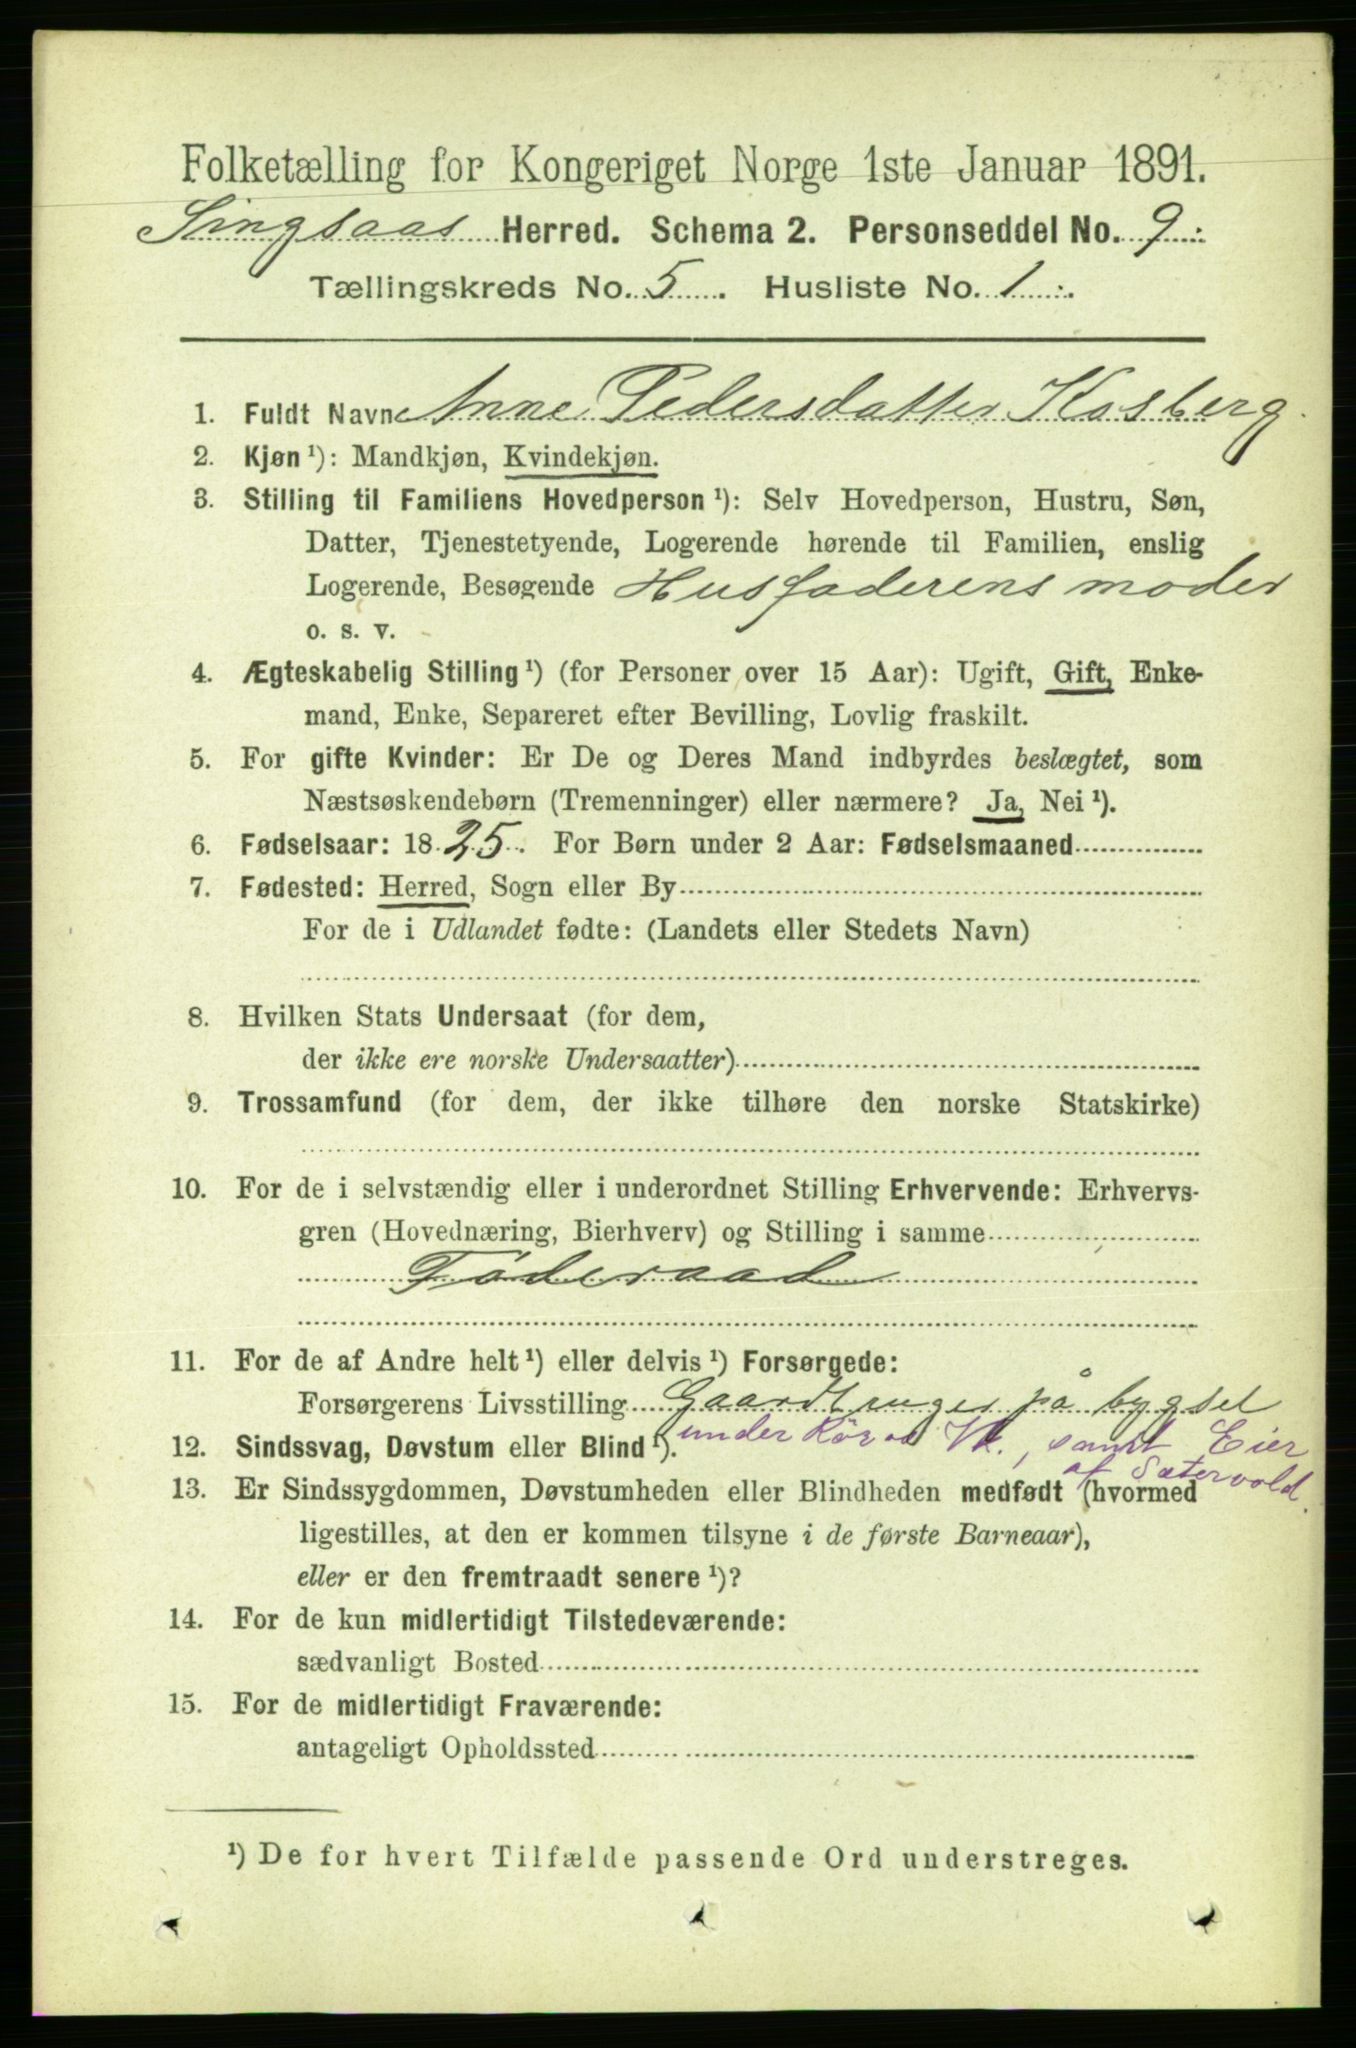 Folketælling for Kongeriget Norge 1ste Januar 1891.
Singsaas Herred. Schema 2. Personseddel No. 9.
Tællingskreds No. 5. Husliste No. 1.
1. Fuldt Navn Anne Pedersdatter Kosberg.
2. Kjøn ¹): Mandkjøn, Kvindekjøn.
3. Stilling til Familiens Hovedperson ¹): Selv Hovedperson, Hustru, Søn,
Datter, Tjenestetyende, Logerende hørende til Familien, enslig
Logerende, Besøgende Husfaderens moder
o. s. v.
4. Ægteskabelig Stilling ¹) (for Personer over 15 Aar): Ugift, Gift, Enke-
mand, Enke, Separeret efter Bevilling, Lovlig fraskilt.
5. For gifte Kvinder: Er De og Deres Mand indbyrdes beslægtet, som
Næstsøskendebørn (Tremenninger) eller nærmere? Ja, Nei ¹).
6. Fødselsaar: 1825. For Børn under 2 Aar: Fødselsmaaned
7. Fødested: Herred, Sogn eller By
For de i Udlandet fødte: (Landets eller Stedets Navn)
8. Hvilken Stats Undersaat (for dem,
der ikke ere norske Undersaatter)
9. Trossamfund (for dem, der ikke tilhøre den norske Statskirke)
10. For de i selvstændig eller i underordnet Stilling Erhvervende: Erhvervs-
gren (Hovednæring, Bierhverv) og Stilling i samme
Föderaad
11. For de af Andre helt ¹) eller delvis ¹) Forsørgede:
Forsørgerens Livsstilling Gaardbruger på bygsel
under Rör Vk., samt Eier
12. Sindssvag, Døvstum eller Blind ¹).
af Sætervold.
13. Er Sindssygdommen, Døvstumheden eller Blindheden medfødt (hvormed
ligestilles, at den er kommen tilsyne i de første Barneaar),
eller er den fremtraadt senere ¹)?
14. For de kun midlertidigt Tilstedeværende:
sædvanligt Bosted
15. For de midlertidigt Fraværende:
antageligt Opholdssted
¹) De for hvert Tilfælde passende Ord understreges.